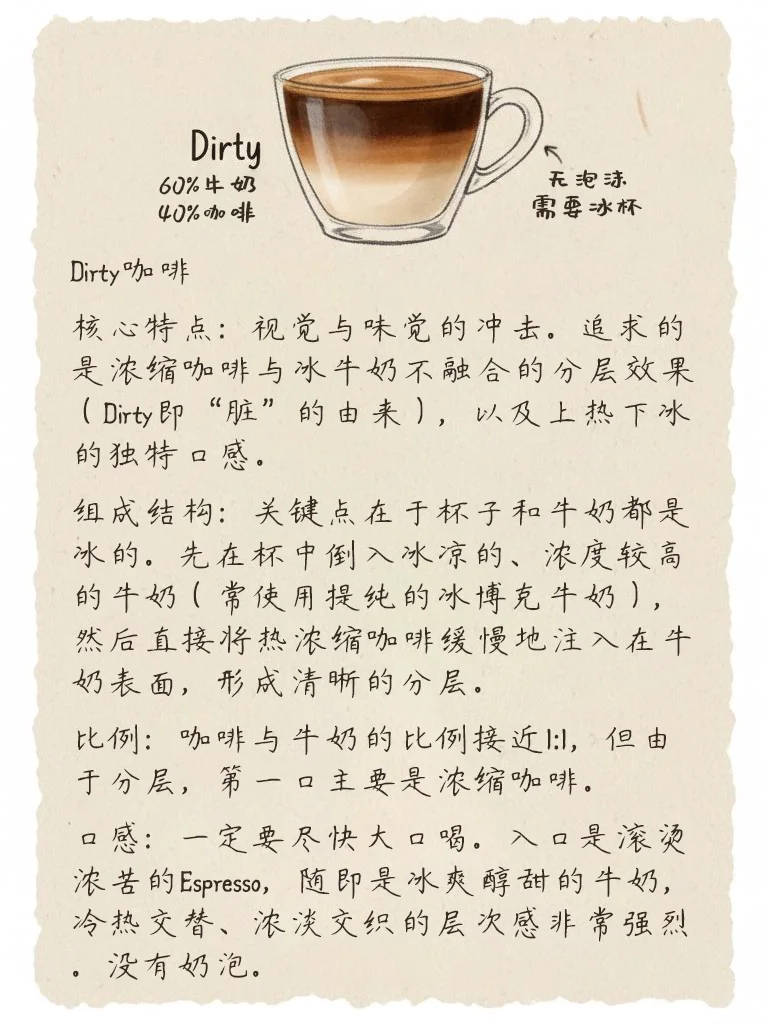 Dirty
60%牛奶
40%咖啡
无泡沫
需要冰杯
Dirty咖啡
核心特点：视觉与味觉的冲击。追求的
是浓缩咖啡与冰牛奶不融合的分层效果
（Dirty即“脏”的由来），以及上热下冰
的独特口感。
组成结构：关键点在于杯子和牛奶都是
冰的。先在杯中倒入冰凉的、浓度较高
的牛奶（常使用提纯的冰博克牛奶），
然后直接将热浓缩咖啡缓慢地注入在牛
奶表面，形成清晰的分层。
比例：咖啡与牛奶的比例接近1:1，但由
于分层，第一口主要是浓缩咖啡。
口感：一定要尽快大口喝。入口是滚烫
浓苦的Espresso，随即是冰爽醇甜的牛奶，
冷热交替、浓淡交织的层次感非常强烈
。没有奶泡。